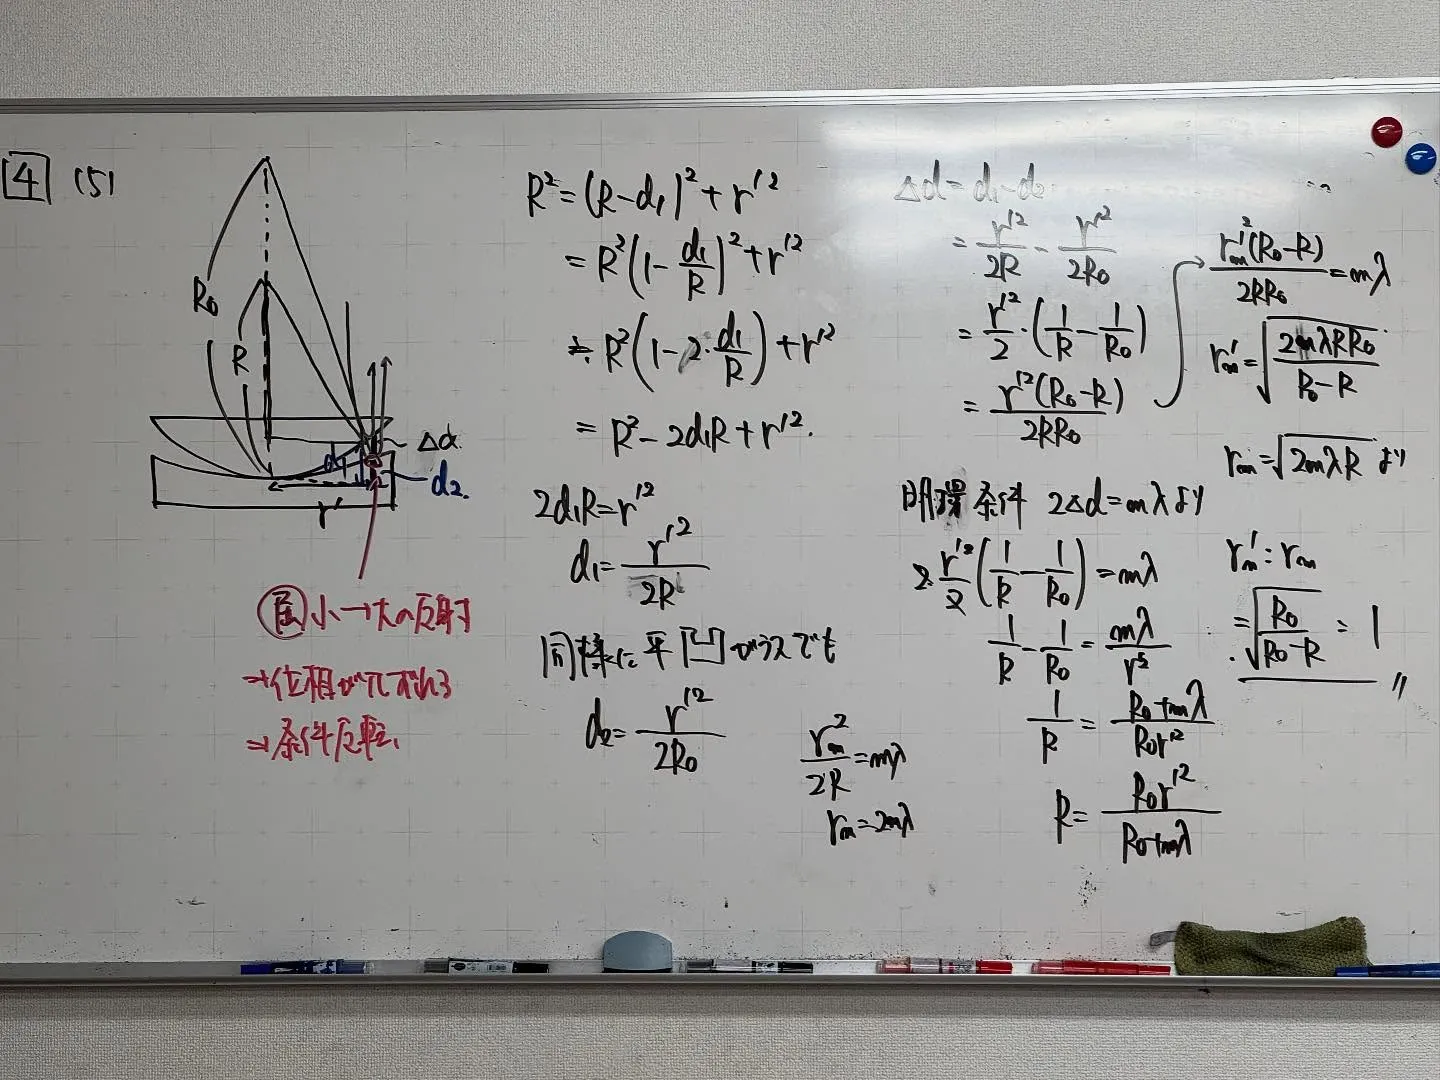 4 (5)
R₀
R
d₁
Δd
d₂
r'
屈 小→大の反射
→位相がπずれる
→条件反転
R²=(R-d₁)²+r'²
=R²(1-d₁/R)²+r'²
≒R²(1-2·d₁/R)+r'²
=R²-2d₁R+r'²
2d₁R=r'²
d₁=r'²/2R
同様に平凹ガラスでも
d₂=r'²/2R₀
rₘ²/2R=mλ
rₘ=2mλ
Δd=d₁-d₂
=r'²/2R-r'²/2R₀
=r'²/2·(1/R-1/R₀)
=r'²(R₀-R)/2RR₀
明環条件 2Δd=mλより
2·r'²/2(1/R-1/R₀)=mλ
1/R-1/R₀=mλ/r'²
1/R=R₀+mλ/R₀r'²
R=R₀r'²/R₀+mλ
r'ₘ²(R₀-R)/2RR₀=mλ
r'ₘ=√2mλRR₀/R₀-R
rₘ=√2mλRより
r'ₘ:rₘ
=√R₀/√R₀-R:1